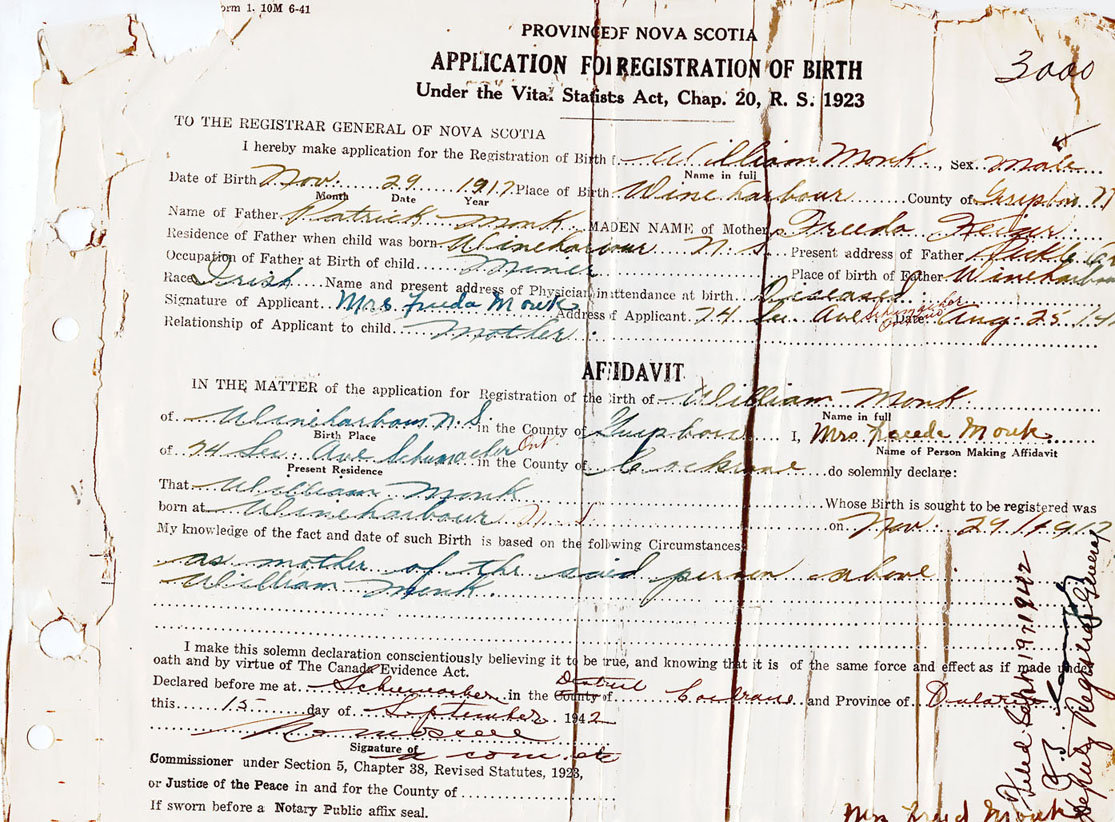 orm 1. 10M 6-41
PROVINCE OF NOVA SCOTIA
3000
APPLICATION FOR REGISTRATION OF BIRTH
Under the Vital Statistcs Act, Chap. 20, R. S. 1923
TO THE REGISTRAR GENERAL OF NOVA SCOTIA
I hereby make application for the Registration of Birth William Monk, Sex Male
Name in full
Date of Birth Nov. 29 1917 Place of Birth Wine harbour County of
Month Date Year
Name of Father Patrick Monk MADEN NAME of Mother Freeda
Residence of Father when child was born Wineharbour N. S. Present address of Father
Occupation of Father at Birth of child Miner Place of birth of Father Wineharbou
Race Irish Name and present address of Physician in attendance at birth Diseased
Signature of Applicant Mrs. Freeda Monk Address of Applicant 74 Ave Schumacher Date Aug. 25
Relationship of Applicant to child Mother
AFFIDAVIT
IN THE MATTER of the application for Registration of the Birth of William Monk
Name in full
of Wineharbour N. S. in the County of I, Mrs Freeda Monk
Birth Place Name of Person Making Affidavit
of 74 Ave Schumacher Ont in the County of Cockrane do solemnly declare:
Present Residence
That William Monk Whose Birth is sought to be registered was
born at Wineharbour N. S. on Nov. 29
My knowledge of the fact and date of such Birth is based on the following Circumstances
as mother of the said person above
William Monk
I make this solemn declaration conscientiously believing it to be true, and knowing that it is of the same force and effect as if made under
oath and by virtue of The Canada Evidence Act.
Declared before me at Schumacher in the County of District Cochrane and Province of Ontario
this 15 day of September 1942
Signature of a com. etc
Commissioner under Section 5, Chapter 38, Revised Statutes, 1923,
or Justice of the Peace in and for the County of
If sworn before a Notary Public affix seal.
Mrs Freed Monk
Filed Sept. 19, 1942
Deputy Registrar General